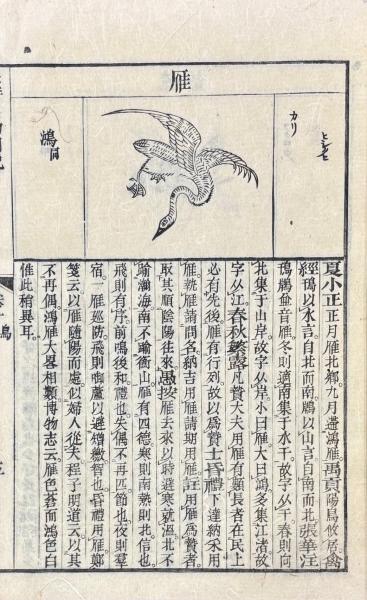 雁
カリ
鴻同
夏小正正月雁北鄉。九月遰鴻雁。禹貢陽鳥攸居。禽
經鳱以水言。自北而南。鴈以山言。自南而北。張華注
鳱鴈並音雁。冬則適南集于水干。故字从干。春則向
北集于山岸。故字从岸。小曰雁。大曰鴻。多集江渚。故
字从江。春秋繁露凡贄大夫用雁。有類長者在民上
必有先後。雁有行列。故以爲贄。士昏禮下達納采用
雁。執雁請問名。納吉用雁。請期用雁。註用雁爲贄者。
取其順陰陽往來。愚按雁去來以時。避寒就溫。北不
踰瀚海。南不踰衡山。雁有四德。寒則南。熱則北。信也。
飛則有序。前鳴後和。禮也。失偶不再匹。節也。夜則羣
宿。一雁巡防。飛則啣蘆以避矰繳。智也。昏禮用雁。鄭
箋云。以雁隨陽而處。似婦人從夫。程子明道云。以其
不再偶。鴻雁大畧相類。博物志云。雁色蒼而鴻色白。
惟此稍異耳。